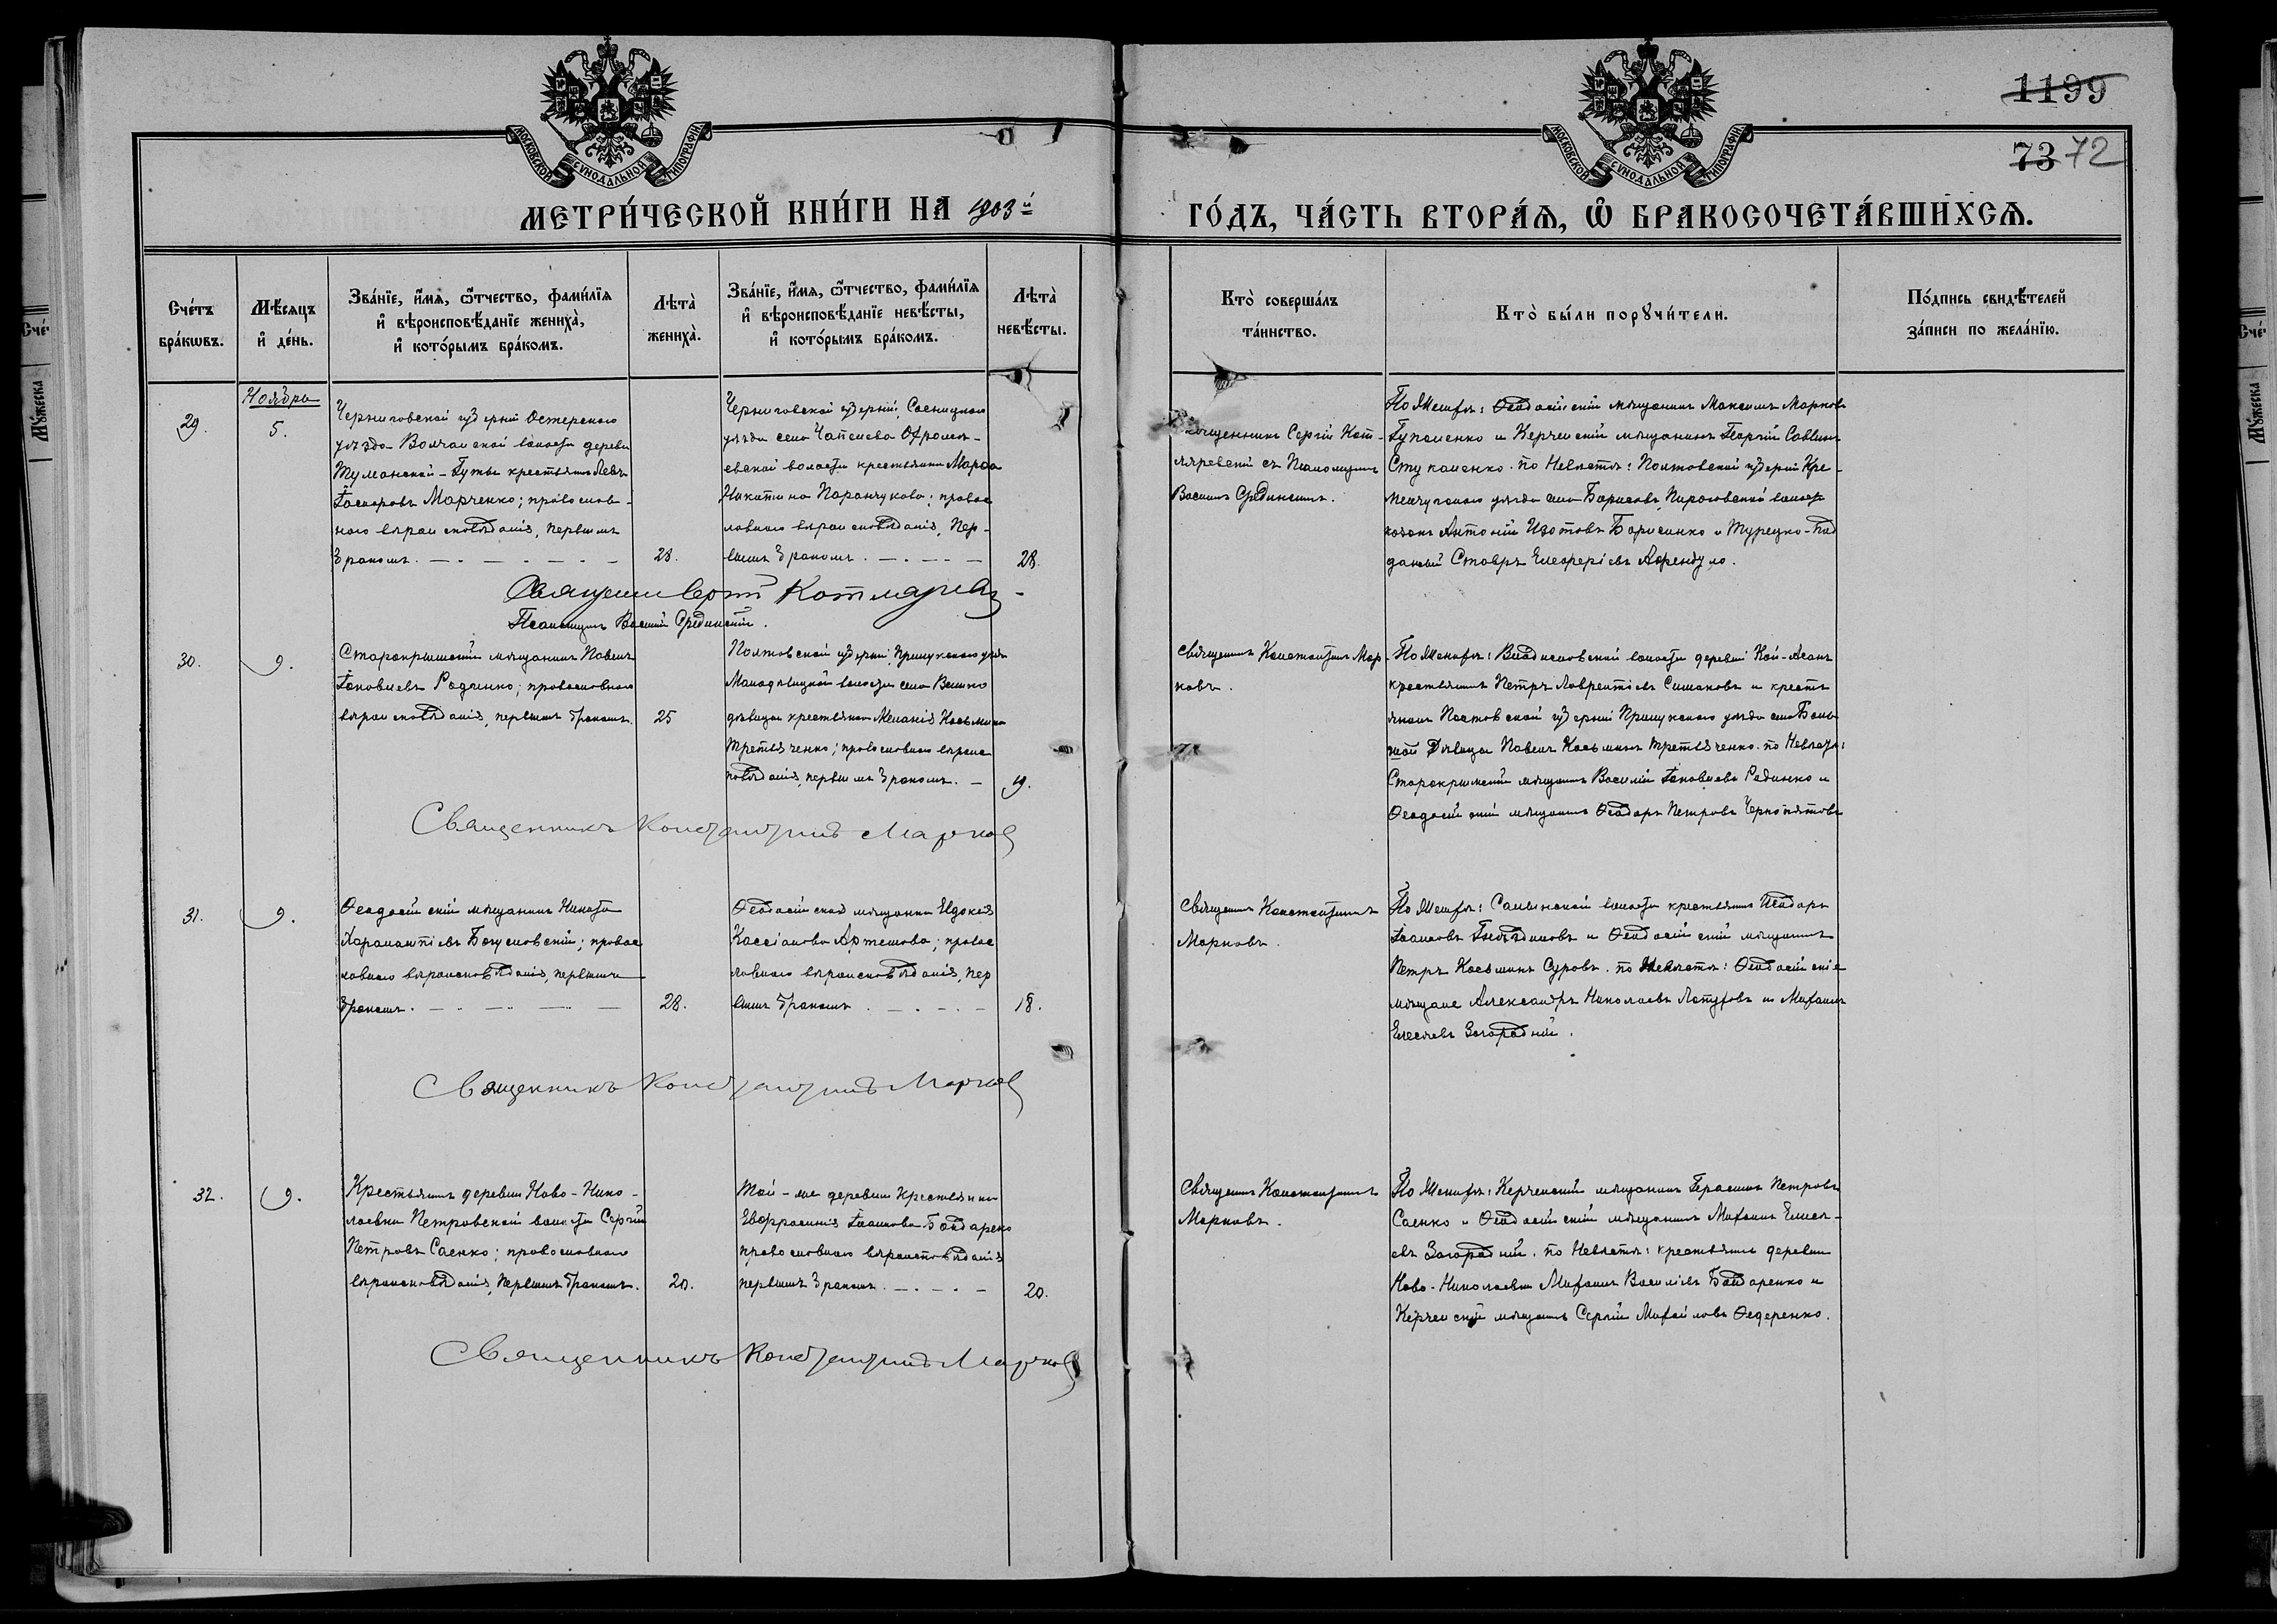 МОСКОВСКОЙ СѴНОДАЛЬНОЙ ТИПОГРАФІИ
МОСКОВСКОЙ СѴНОДАЛЬНОЙ ТИПОГРАФІИ
1199
73 72
МЕТРИ́ЧЕСКОЙ КНИ́ГИ НА 1903й
ГО́ДЪ, ЧА́СТЬ ВТОРА́Ѧ, Ѽ БРАКОСОЧЕТА́ВШИХСѦ.
Сче́тъ бра́кѡвъ.
Мѣ́сяцъ и҆ де́нь.
Зва́нїе, и҆́мѧ, ѻ҆́тчество, фами́лїѧ и҆ вѣроисповѣ́данїе жениха̀, и҆ кото́рымъ бра́комъ.
Лѣта̀ жениха̀.
Зва́нїе, и҆́мѧ, ѻ҆́тчество, фами́лїѧ и҆ вѣроисповѣ́данїе невѣ́сты, и҆ кото́рымъ бра́комъ.
Лѣта̀ невѣ́сты.
Кто̀ соверша́лъ та́инство.
Кто̀ бы́ли порꙋчи́тели.
По́дпись свидѣ́телей за́писи по жела́нїю.
Ноября
29.
5.
Черниговской губерніи Остерскаго
уѣзда волости деревни
Туманской-Гуты крестьянинъ Левъ
Марченко; православ-
наго вѣроисповѣданія, первымъ
бракомъ.
28.
Черниговской губерніи, Сосницкаго
уѣзда села
волости крестьянка Марѳа
Никитина; правос
лавнаго вѣроисповѣданія, пер-
вымъ бракомъ.
28.
Священникъ Сергій Кот-
ляревскій съ Псаломщикомъ
Василіемъ Срединскимъ.
По Женихѣ: Ѳеодосійскій мѣщанинъ Максимъ Марковъ
и Керченскій мѣщанинъ Георгій Саввинъ
Стукаленко. по Невѣстѣ: Полтавской губерніи Кре-
менчугскаго уѣзда села волости
козакъ Антоній Изотовъ Борисенко и Турецко-под
данный Ставръ Елевферіевъ
Священникъ Сергій Котляревскій
Псаломщикъ Василій Срединскій.
30.
9.
Старокрымскій мѣщанинъ Павелъ
Іаковлевъ Радченко; православнаго
вѣроисповѣданія, первымъ бракомъ.
25
Полтавской губерніи, Прилукскаго уѣзда
волости села Велико
дѣвицы крестьянка Меланія Косьмина
Третьяченко; православнаго вѣроис
повѣданія, первымъ бракомъ.
19.
Священникъ Константинъ Мар-
ковъ.
По Женихѣ: Владиславской волости деревни Кой-Асанъ
крестьянинъ Петръ Лаврентіевъ Симаковъ и кресть
янинъ Полтавской губерніи Прилукскаго уѣзда села Боль
шой Дѣвицы Павелъ Косьминъ Третьяченко. по Невѣстѣ:
Старокрымскій мѣщанинъ Василій Іаковлевъ Радченко и
Ѳеодосійскій мѣщанинъ Ѳеодоръ Петровъ Чернопятовъ
Священникъ Константинъ Марковъ
31.
9.
Ѳеодосійскій мѣщанинъ Никита
Харалампіевъ Богуславскій; правос
лавнаго вѣроисповѣданія, первымъ
бракомъ.
28.
Ѳеодосійская мѣщанка Евдокія
Кассіанова Артемова; правос
лавнаго вѣроисповѣданія, пер
вымъ бракомъ
18.
Священникъ Константинъ
Марковъ.
По Женихѣ: Салынской волости крестьянинъ Ѳеодоръ
Іоанновъ и Ѳеодосійскій мѣщанинъ
Петръ Косьминъ Суровъ. по Невѣстѣ: Ѳеодосійскіе
мѣщане Александръ Николаевъ и Михаилъ
Елисѣевъ Загородній.
Священникъ Константинъ Марковъ
32.
9.
Крестьянинъ деревни Ново-Нико-
лаевки Петровской волости Сергій
Петровъ Саенко; православнаго
вѣроисповѣданія, первымъ бракомъ.
20.
Той-же деревни крестьянка
Евфросинія Іоаннова Бондаренко
православнаго вѣроисповѣданія
первымъ бракомъ.
20.
Священникъ Константинъ
Марковъ.
По Женихѣ: Керченскій мѣщанинъ Герасимъ Петровъ
Саенко и Ѳеодосійскій мѣщанинъ Михаилъ Елисѣ-
евъ Загородній. по Невѣстѣ: крестьянинъ деревни
Ново-Николаевки Михаилъ Василіевъ Бондаренко и
Керченскій мѣщанинъ Сергій Михайловъ Ѳедеренко.
Священникъ Константинъ Марковъ